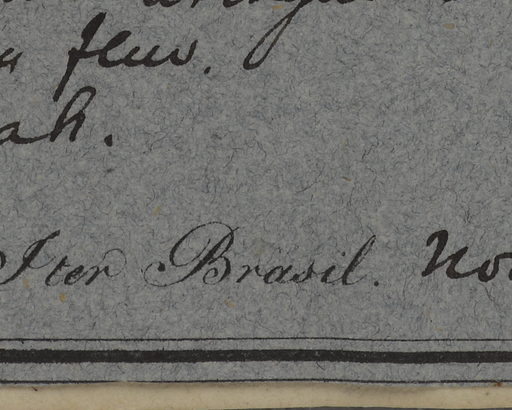 fluv.
ah.
Iter Brasil. No